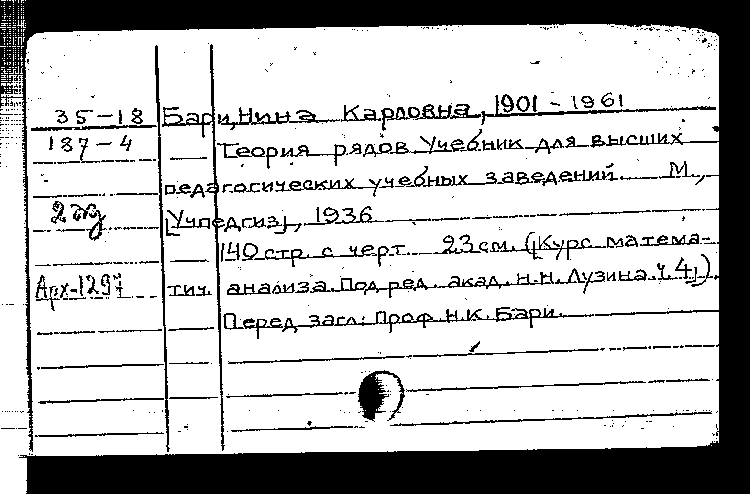 35-18 Бари, Нина Карловна, 1901 - 1961
187-4 Теория рядов Учебник для высших
педагогических учебных заведений. М.,
2 экз [Учпедгиз], 1936
140 стр. с черт. 23 см. ([Курс матема-
Арх-1297 тич. анализа. Под ред. акад. Н.Н. Лузина. Ч. 4])
Перед загл.: Проф. Н.К. Бари.